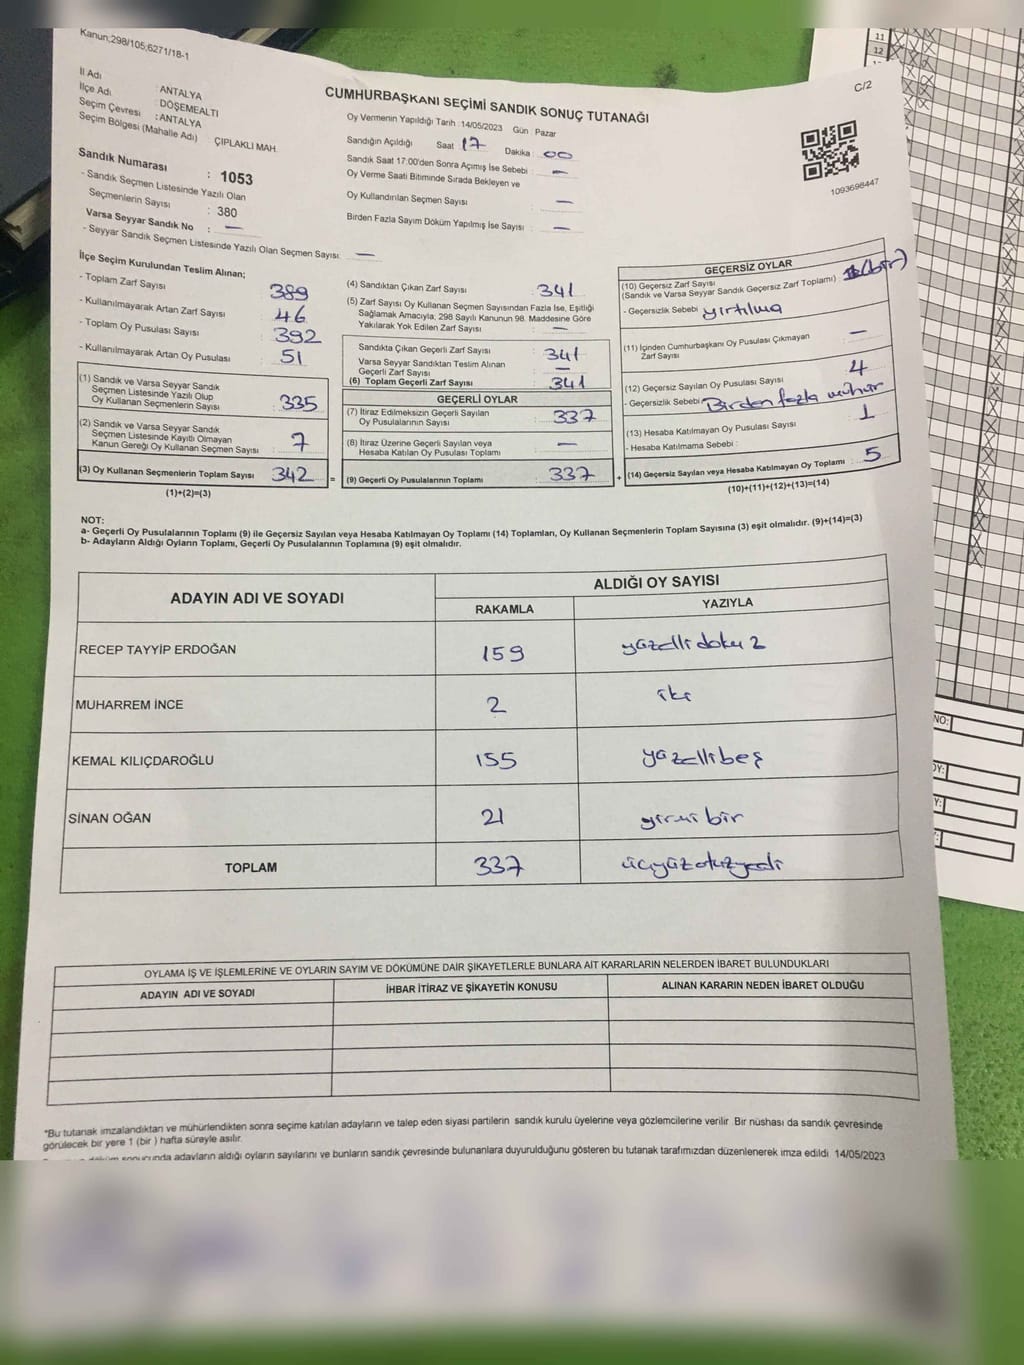 Kanun;298/105;6271/18-1
C/2
İl Adı : ANTALYA
İlçe Adı : DÖŞEMEALTI
Seçim Çevresi : ANTALYA
Seçim Bölgesi (Mahalle Adı) ÇIPLAKLI MAH.
Sandık Numarası : 1053
- Sandık Seçmen Listesinde Yazılı Olan
Seçmenlerin Sayısı : 380
Varsa Seyyar Sandık No : —
- Seyyar Sandık Seçmen Listesinde Yazılı Olan Seçmen Sayısı: —
CUMHURBAŞKANI SEÇİMİ SANDIK SONUÇ TUTANAĞI
Oy Vermenin Yapıldığı Tarih :14/05/2023 Gün : Pazar
Sandığın Açıldığı Saat 17 Dakika : 00
Sandık Saat 17:00'den Sonra Açımış İse Sebebi : —
Oy Verme Saati Bitiminde Sırada Bekleyen ve
Oy Kullandırılan Seçmen Sayısı : —
Birden Fazla Sayım Döküm Yapılmış İse Sayısı : —
1093698447
İlçe Seçim Kurulundan Teslim Alınan;
- Toplam Zarf Sayısı : 389
- Kullanılmayarak Artan Zarf Sayısı : 46
- Toplam Oy Pusulası Sayısı : 392
- Kullanılmayarak Artan Oy Pusulası : 51
(1) Sandık ve Varsa Seyyar Sandık
Seçmen Listesinde Yazılı Olup
Oy Kullanan Seçmenlerin Sayısı : 335
(2) Sandık ve Varsa Seyyar Sandık
Seçmen Listesinde Kayıtlı Olmayan
Kanun Gereği Oy Kullanan Seçmen Sayısı : 7
(3) Oy Kullanan Seçmenlerin Toplam Sayısı : 342 =
(1)+(2)=(3)
(4) Sandıktan Çıkan Zarf Sayısı : 341
(5) Zarf Sayısı Oy Kullanan Seçmen Sayısından Fazla İse, Eşitliği
Sağlamak Amacıyla; 298 Sayılı Kanunun 98. Maddesine Göre
Yakılarak Yok Edilen Zarf Sayısı : —
Sandıkta Çıkan Geçerli Zarf Sayısı : 341
Varsa Seyyar Sandıktan Teslim Alınan
Geçerli Zarf Sayısı : —
(6) Toplam Geçerli Zarf Sayısı : 341
GEÇERLİ OYLAR
(7) İtiraz Edilmeksizin Geçerli Sayılan
Oy Pusulalarının Sayısı : 337
(8) İtiraz Üzerine Geçerli Sayılan veya
Hesaba Katılan Oy Pusulası Toplamı : —
(9) Geçerli Oy Pusulalarının Toplamı : 337 +
GEÇERSİZ OYLAR
(10) Geçersiz Zarf Sayısı
(Sandık ve Varsa Seyyar Sandık Geçersiz Zarf Toplamı) : (bir)
- Geçersizlik Sebebi : yırtılma
(11) İçinden Cumhurbaşkanı Oy Pusulası Çıkmayan
Zarf Sayısı : —
(12) Geçersiz Sayılan Oy Pusulası Sayısı : 4
- Geçersizlik Sebebi : Birden fazla mühür
(13) Hesaba Katılmayan Oy Pusulası Sayısı : 1
- Hesaba Katılmama Sebebi :
(14) Geçersiz Sayılan veya Hesaba Katılmayan Oy Toplamı : 5
(10)+(11)+(12)+(13)=(14)
NOT:
a- Geçerli Oy Pusulalarının Toplamı (9) ile Geçersiz Sayılan veya Hesaba Katılmayan Oy Toplamı (14) Toplamları, Oy Kullanan Seçmenlerin Toplam Sayısına (3) eşit olmalıdır. (9)+(14)=(3)
b- Adayların Aldığı Oyların Toplamı, Geçerli Oy Pusulalarının Toplamına (9) eşit olmalıdır.
ADAYIN ADI VE SOYADI
ALDIĞI OY SAYISI
RAKAMLA YAZIYLA
RECEP TAYYİP ERDOĞAN 159 yüzellidokuz
MUHARREM İNCE 2 iki
KEMAL KILIÇDAROĞLU 155 yüzellibeş
SİNAN OĞAN 21 yirmi bir
TOPLAM 337 üçyüzotuzyedi
OYLAMA İŞ VE İŞLEMLERİNE VE OYLARIN SAYIM VE DÖKÜMÜNE DAİR ŞİKAYETLERLE BUNLARA AİT KARARLARIN NELERDEN İBARET BULUNDUKLARI
ADAYIN ADI VE SOYADI İHBAR İTİRAZ VE ŞİKAYETİN KONUSU ALINAN KARARIN NEDEN İBARET OLDUĞU
*Bu tutanak imzalandıktan ve mühürlendikten sonra seçime katılan adayların ve talep eden siyasi partilerin sandık kurulu üyelerine veya gözlemcilerine verilir. Bir nüshası da sandık çevresinde
görülecek bir yere 1 (bir ) hafta süreyle asılır.
döküm sonucunda adayların aldığı oyların sayılarını ve bunların sandık çevresinde bulunanlara duyurulduğunu gösteren bu tutanak tarafımızdan düzenlenerek imza edildi. 14/05/2023
11
12
NO:
OY:
Y: